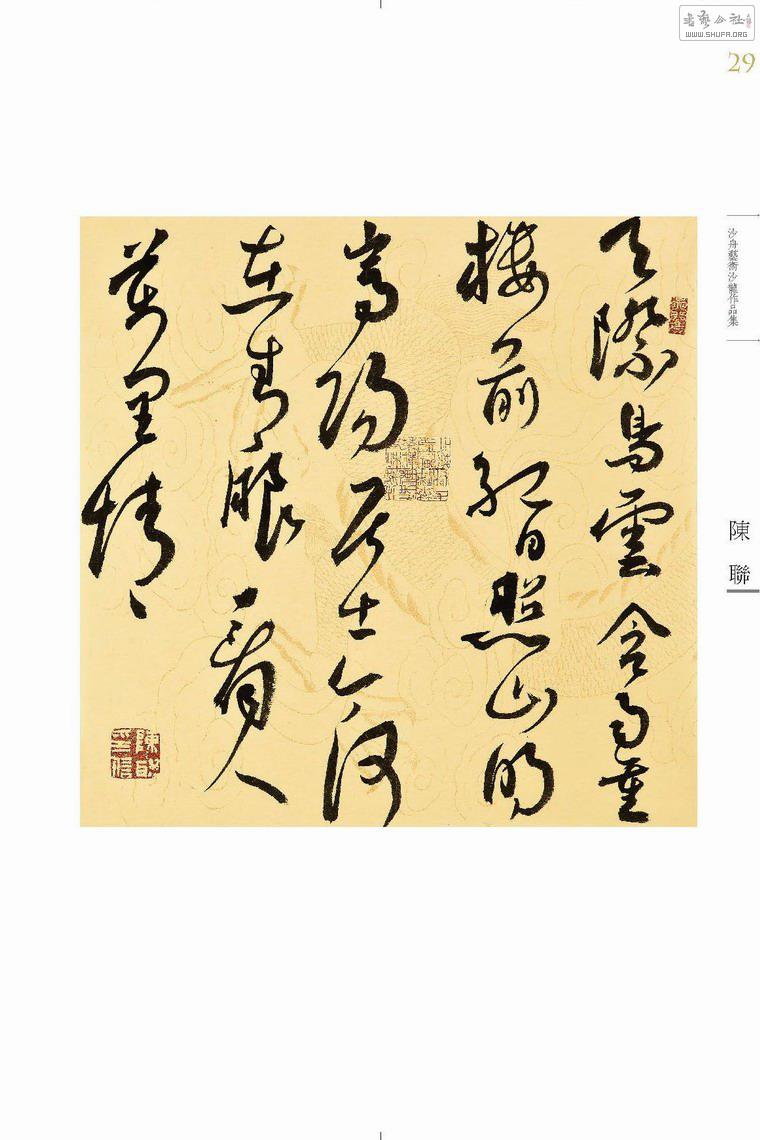 書藝公社
WWW.SHUFA.ORG
29
沙舟藝術沙龍作品集
陳聯
天際烏雲含雨重
樓前紅日照山明
嵩陽居士今何
在青眼看人
萬里情